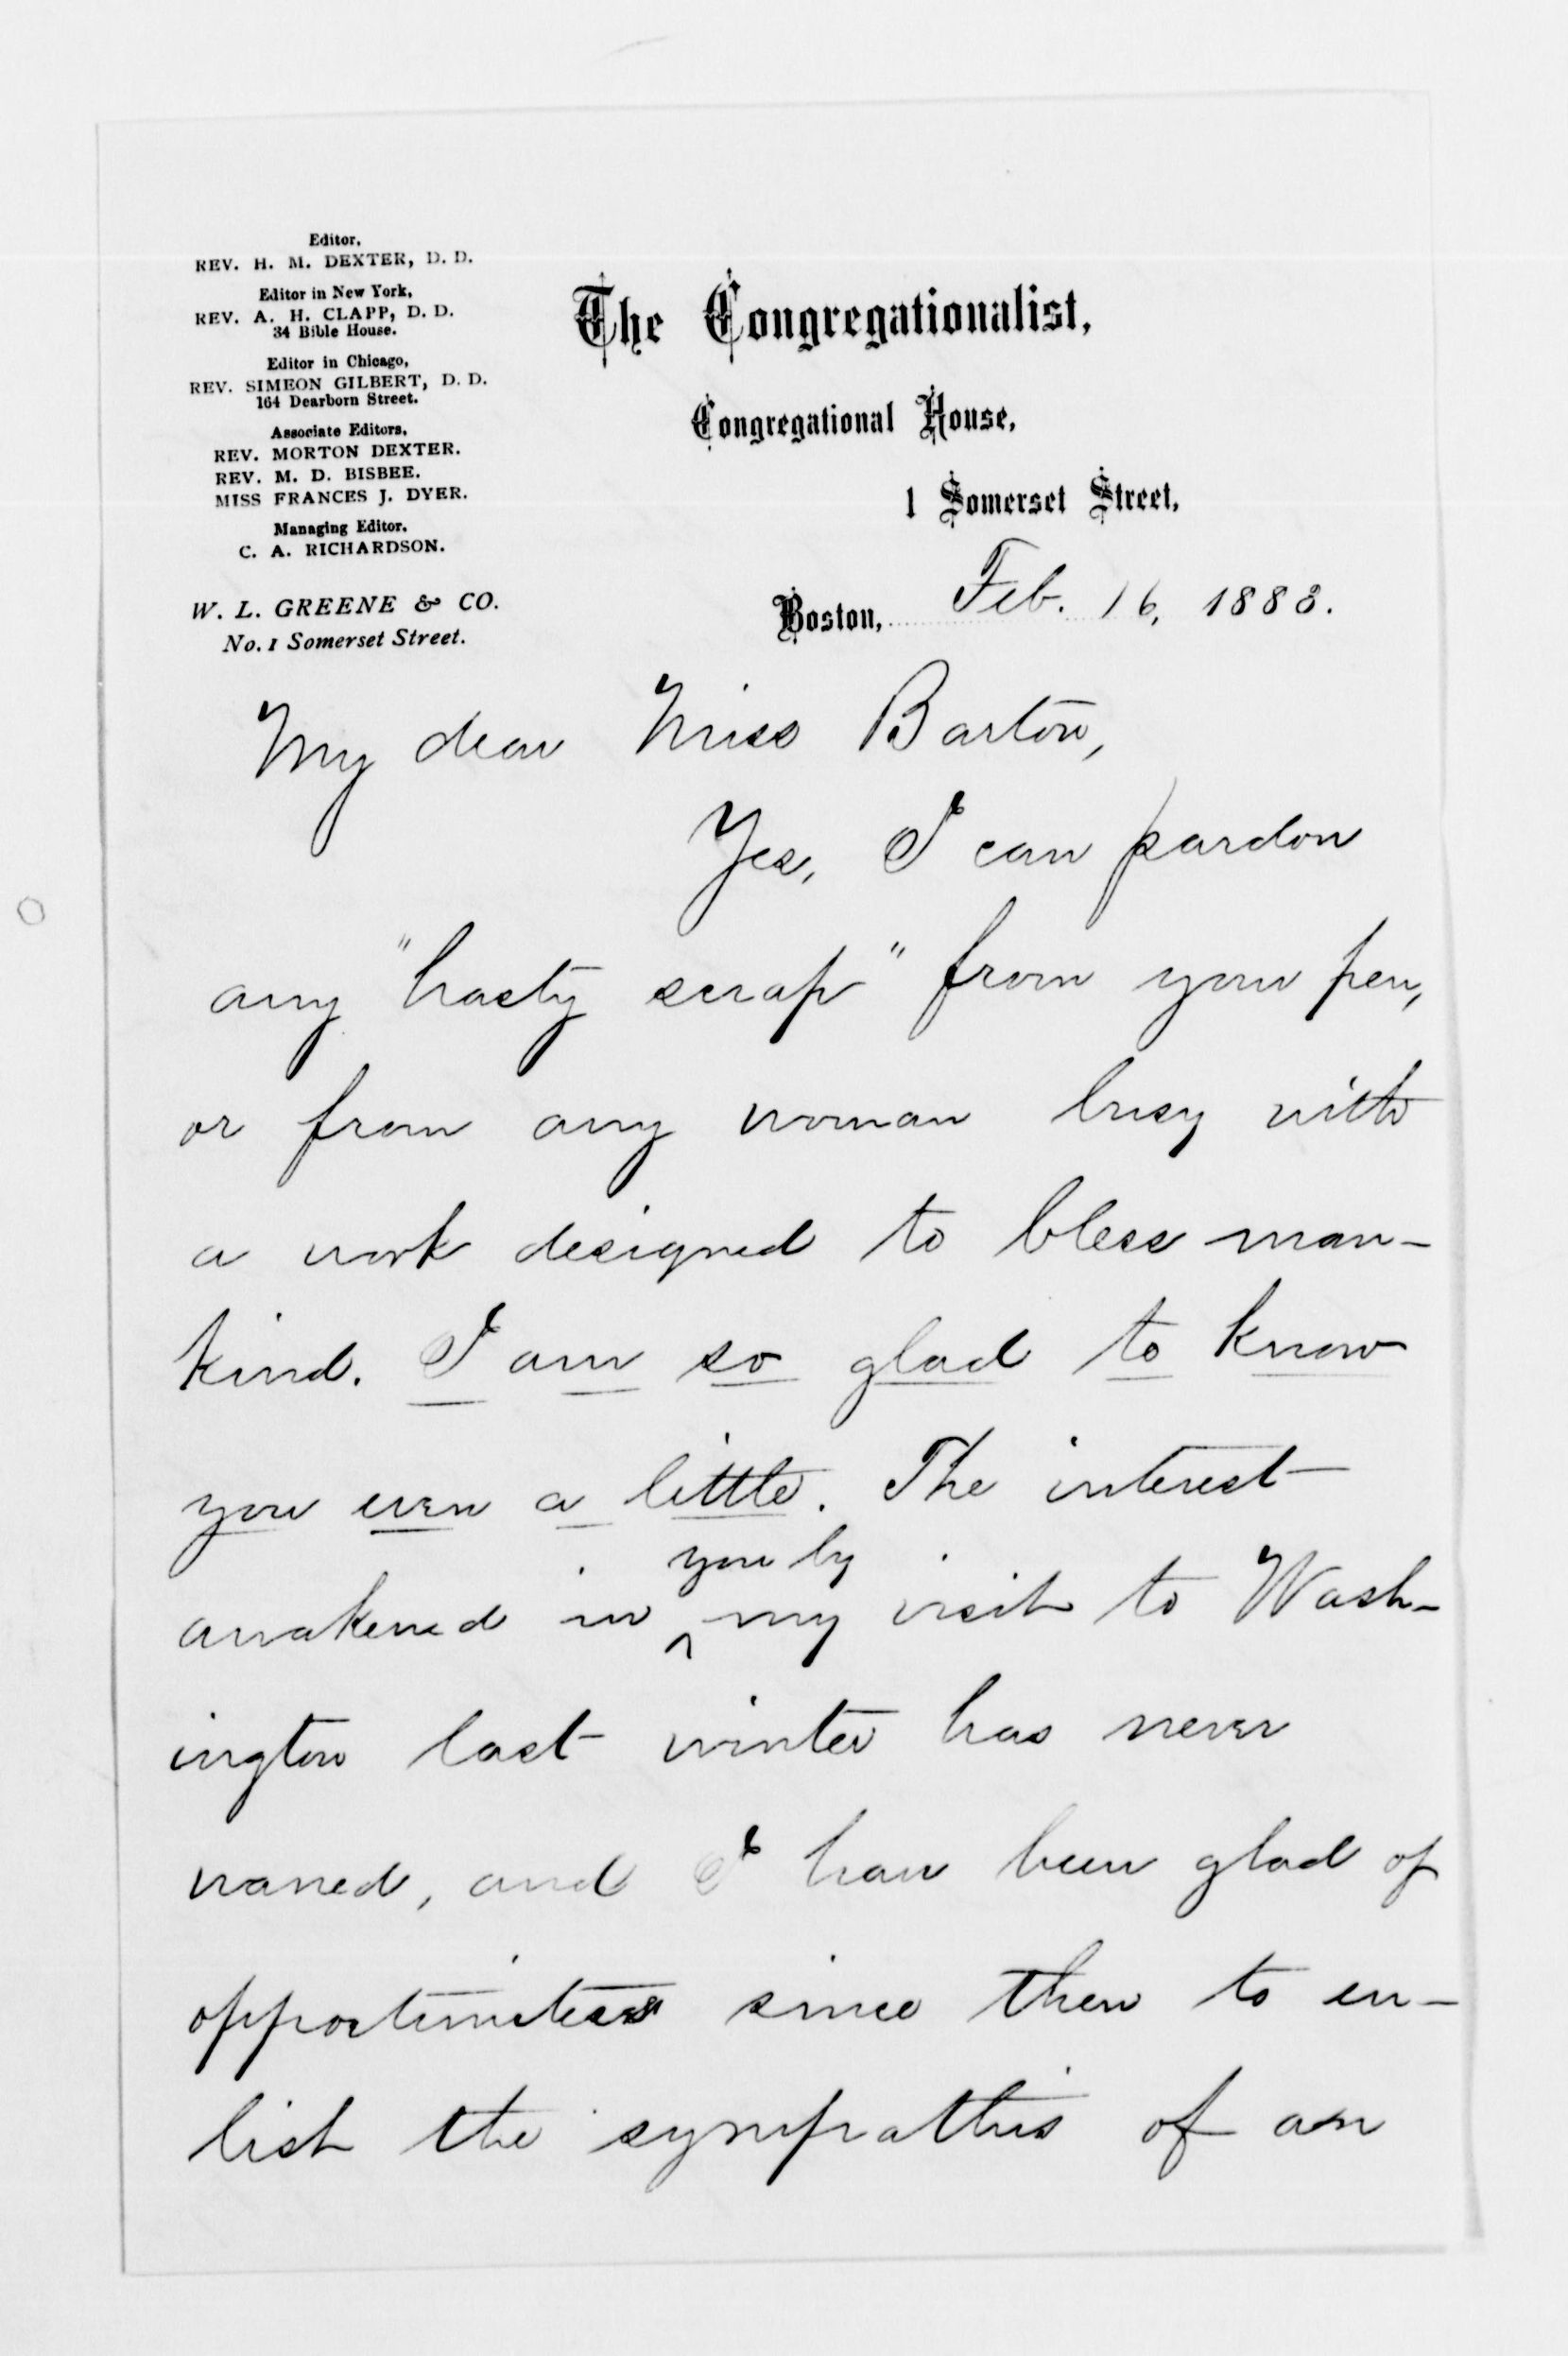 Editor,
REV. H. M. DEXTER, D. D.
Editor in New York,
REV. A. H. CLAPP, D. D.
34 Bible House.
Editor in Chicago,
REV. SIMEON GILBERT, D. D.
164 Dearborn Street.
Associate Editors,
REV. MORTON DEXTER.
REV. M. D. BISBEE.
MISS FRANCES J. DYER.
Managing Editor.
C. A. RICHARDSON.
W. L. GREENE & CO.
No. 1 Somerset Street.
The Congregationalist,
Congregational House,
1 Somerset Street,
Boston, Feb. 16, 1888.
My dear Miss Barton,
Yes, I can pardon
any "hasty scrap" from your pen,
or from any woman busy with
a work designed to bless man-
kind. I am so glad to know
you even a little. The interest
you by
awakened in ^ my visit to Wash-
ington last winter has never
waned, and I have been glad of
opportunities since then to en-
list the sympathies of an